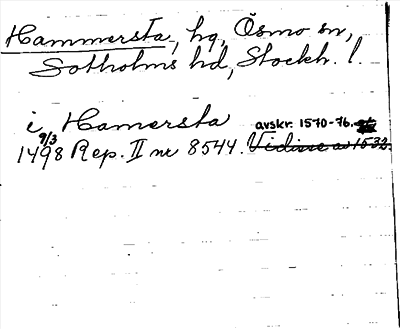 Hammersta, hg, Ösmo sn,
Sotholms hd, Stockh. l.
i Hamersta avskr. 1570-76.
9/3
1498 Rep. II nr 8544. Vidisse a 1532.